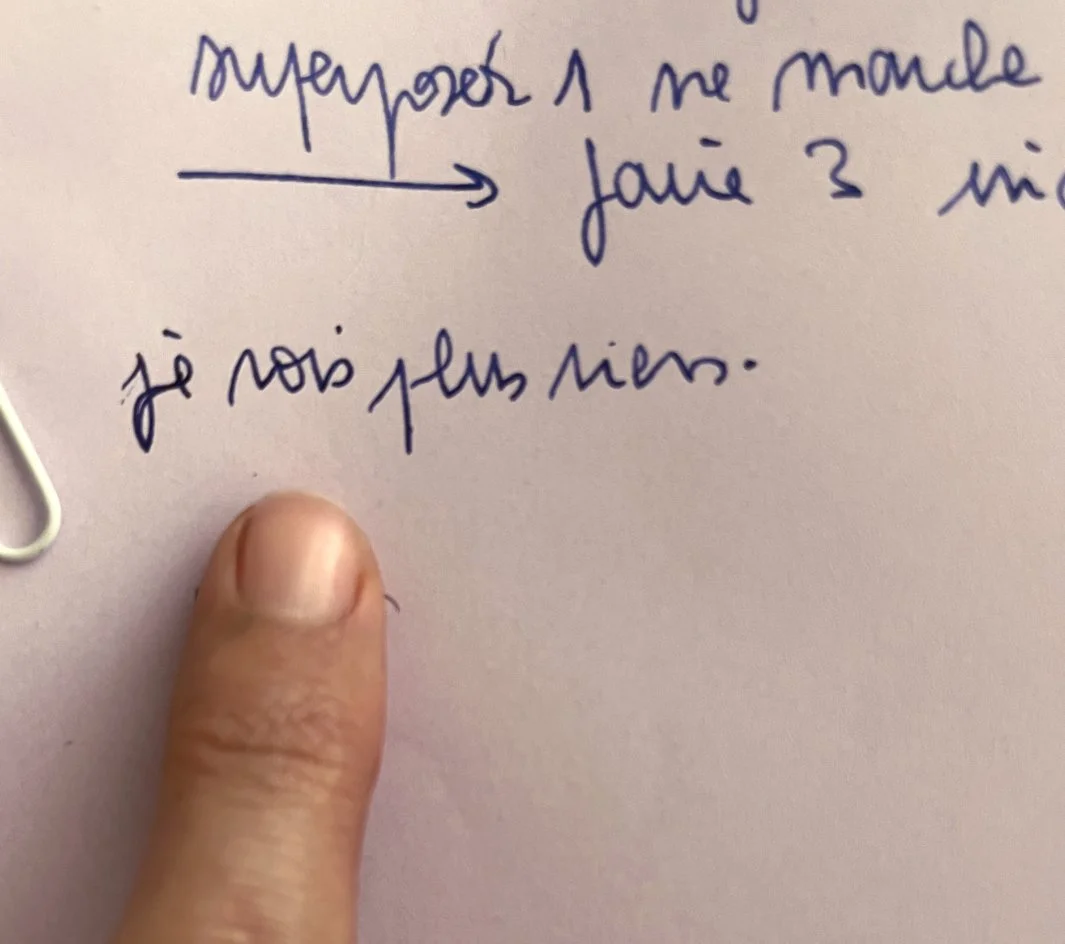 superposés 1 ne marche
→ faire 3
je vois plus rien.